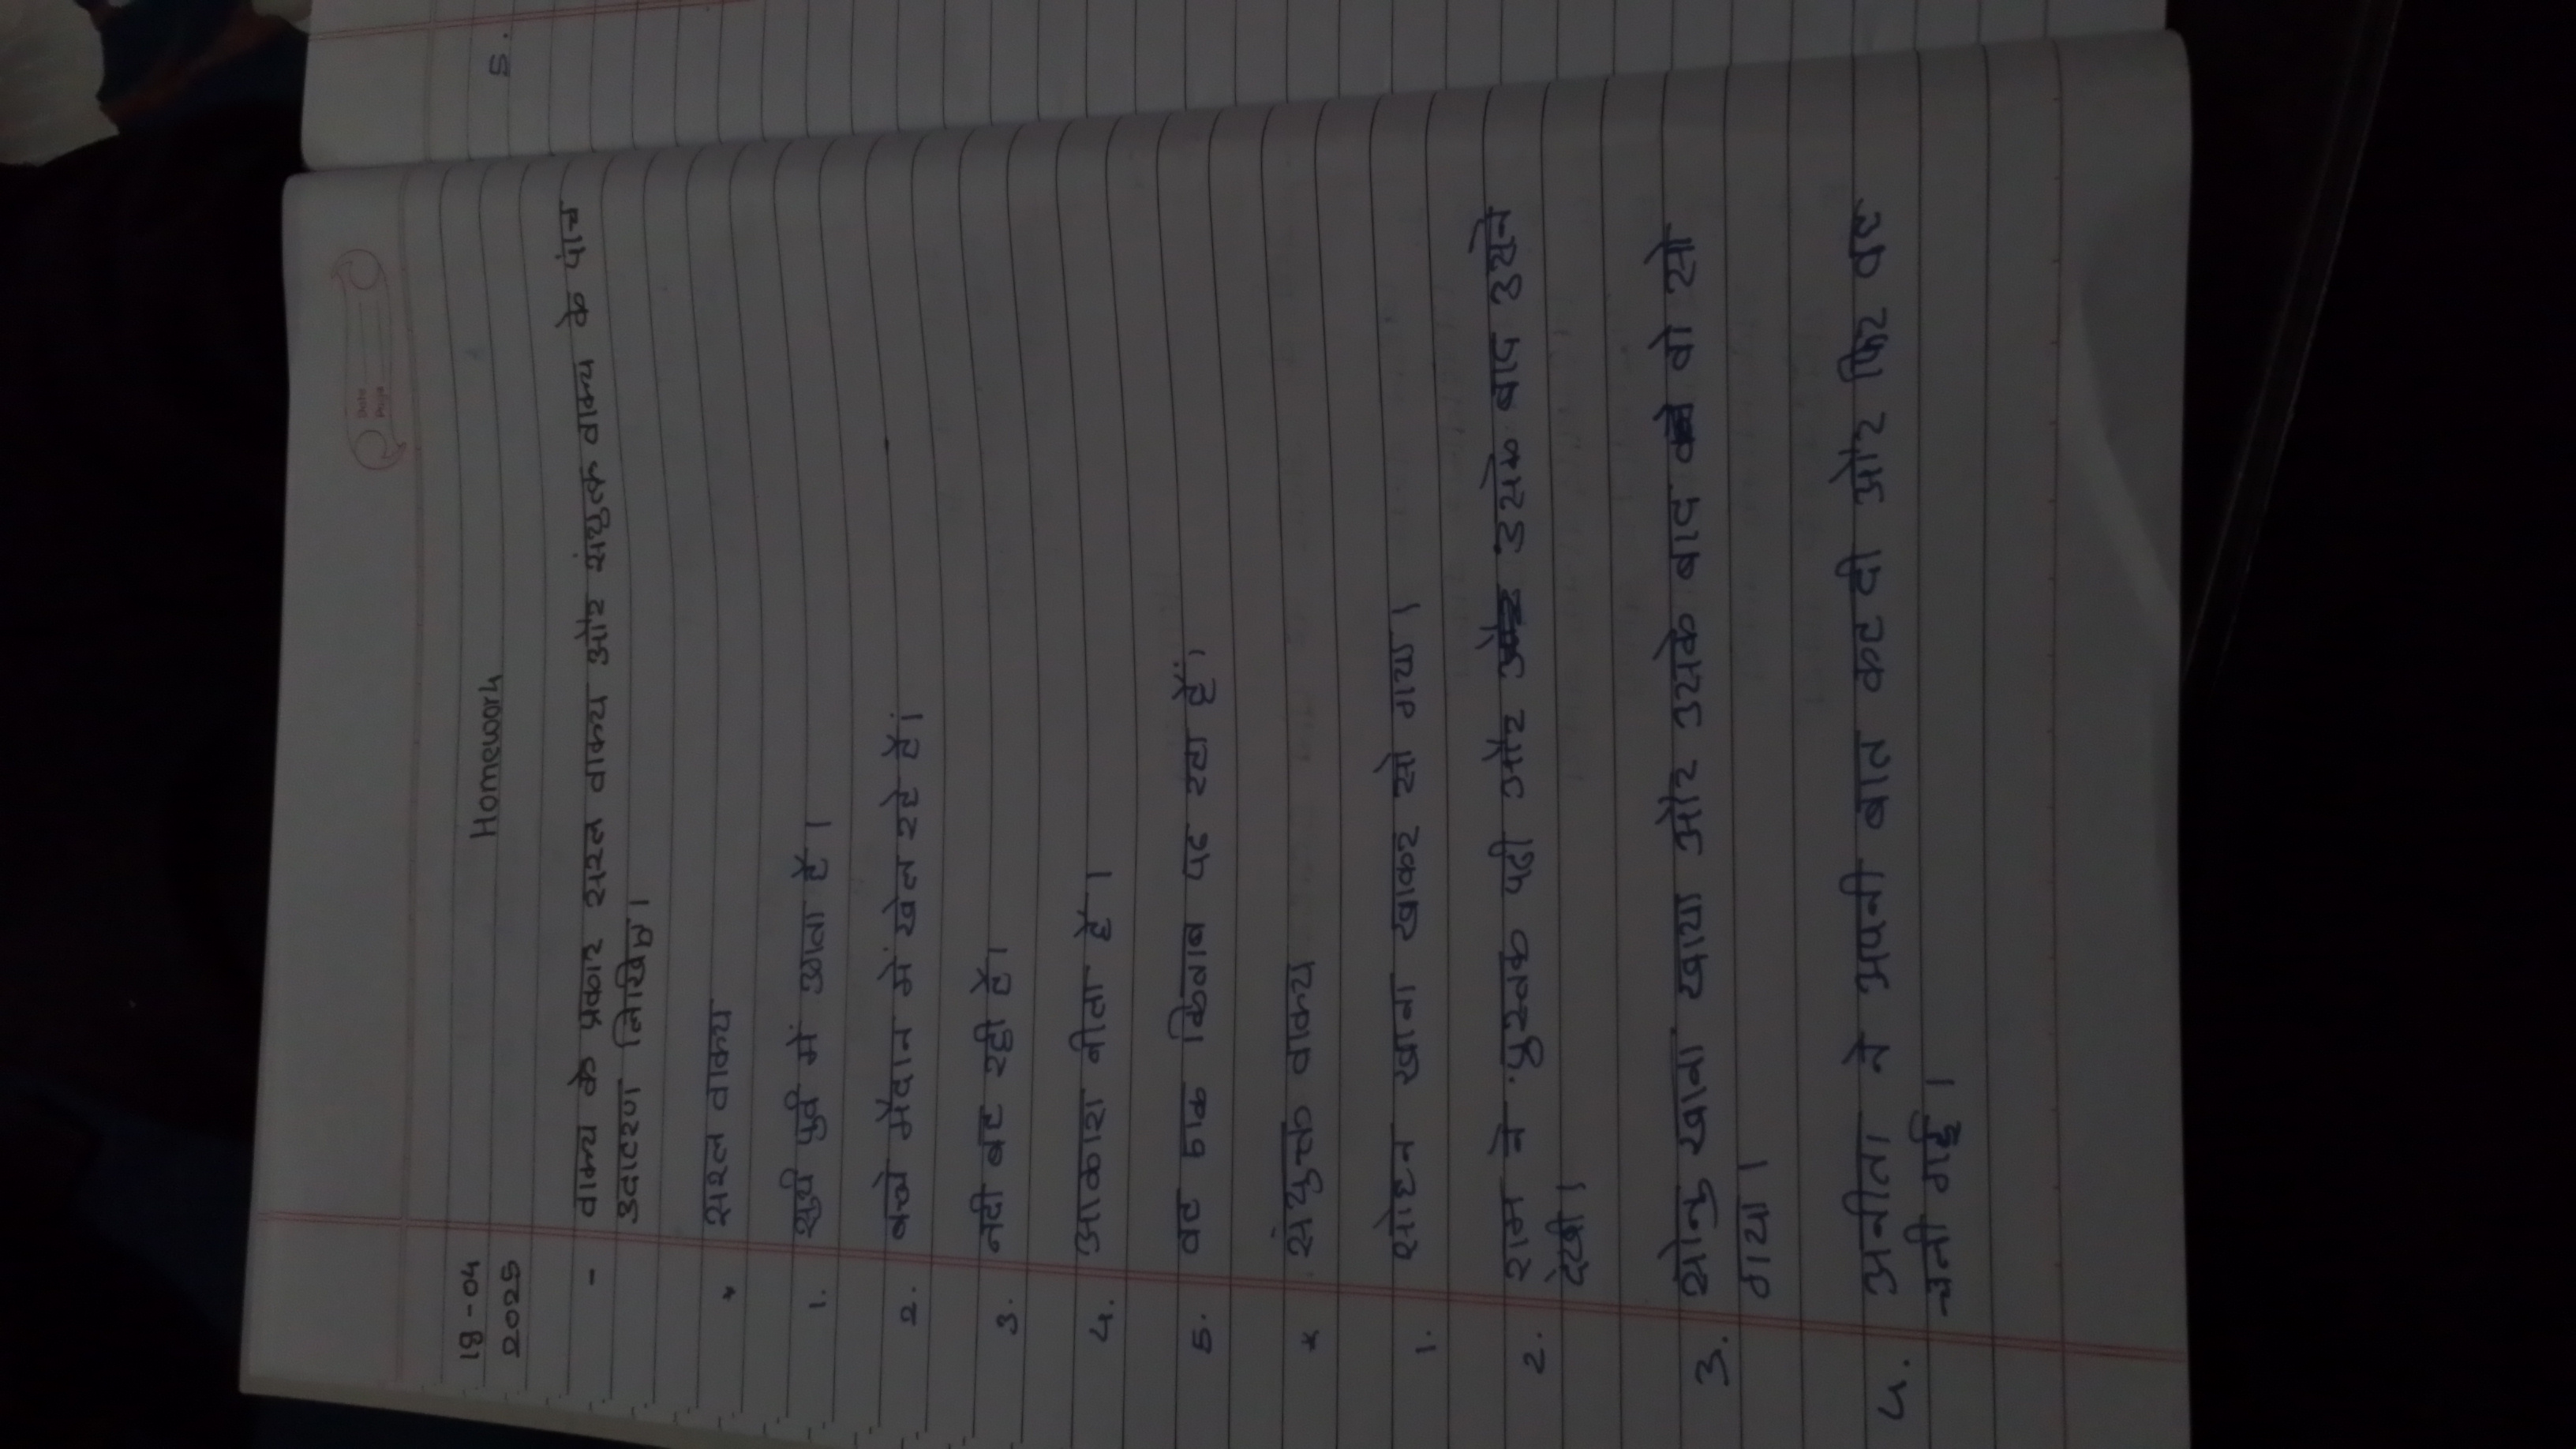 Date
Page
18-04
2025
Homework
- वाक्य के प्रकार सरल वाक्य और संयुक्त वाक्य के पांच
उदाहरण लिखिए।
* सरल वाक्य
1. सुर्य पुर्व में उगता हैं।
2. बच्चे मैंदान में खेल रहे हैं।
3. नदी बह रही हैं।
4. आकाश नीला हैं।
5. वह एक किताब पढ रहा हैं।
* संयुक्त वाक्य
1. सोहन खाना खाकर सो गया।
2. राम ने पुस्तक पढी और उसके बाद उसने
देखी।
3. सोनु खाना खाया और उसके बाद वो सो
गया।
4. अनीता ने अपनी बात कह दी और फिर वह
चली गई।
5.